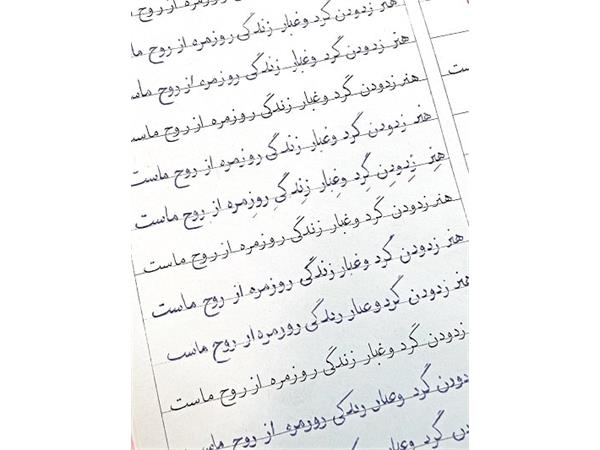 روزمره ازروح
هنر زدودن گرد وغبار زندگی روزمره از روح ما
هنر زدودن گرد وغبار زندگی روزمره از روح ماس
هنر زدودن گرد وغبار زندگی روزمره ازروح ماست
هنر زدودن گرد وغبار زندگی روزمره از روح ماست
هنر زدودن گرد وغبار زندگی روزمره از روح ماست
هنر زدودن گرد وغبار زندگی روزمره ازروح ماست
هنر زدودن گرد وغبار زندگی روزمره از روح ماست
هنر زدودن گرد وغبار زندگی روزمره از روح ماست
زدودن گرد وغبار زندگی روزمره ازروح ماست
دودن گرد وغبار زندگی روزمره از روح ماس
گرد وغبار